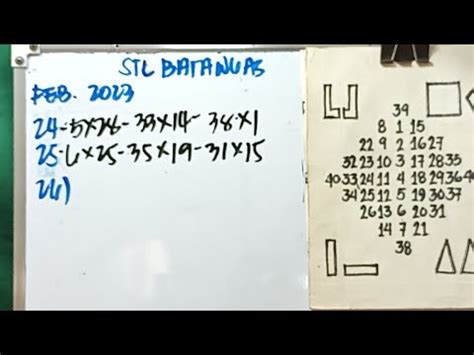 STL BATANGAS
FEB. 2023
24-5x28-33x14-38x1
25-6x25-35x19-31x15
26)
39
8 1 15
22 9 2 16 27
32 23 10 3 17 28 35
40 33 24 11 4 18 29 36 40
34 25 12 5 19 30 37
26 13 6 20 31
14 7 21
38